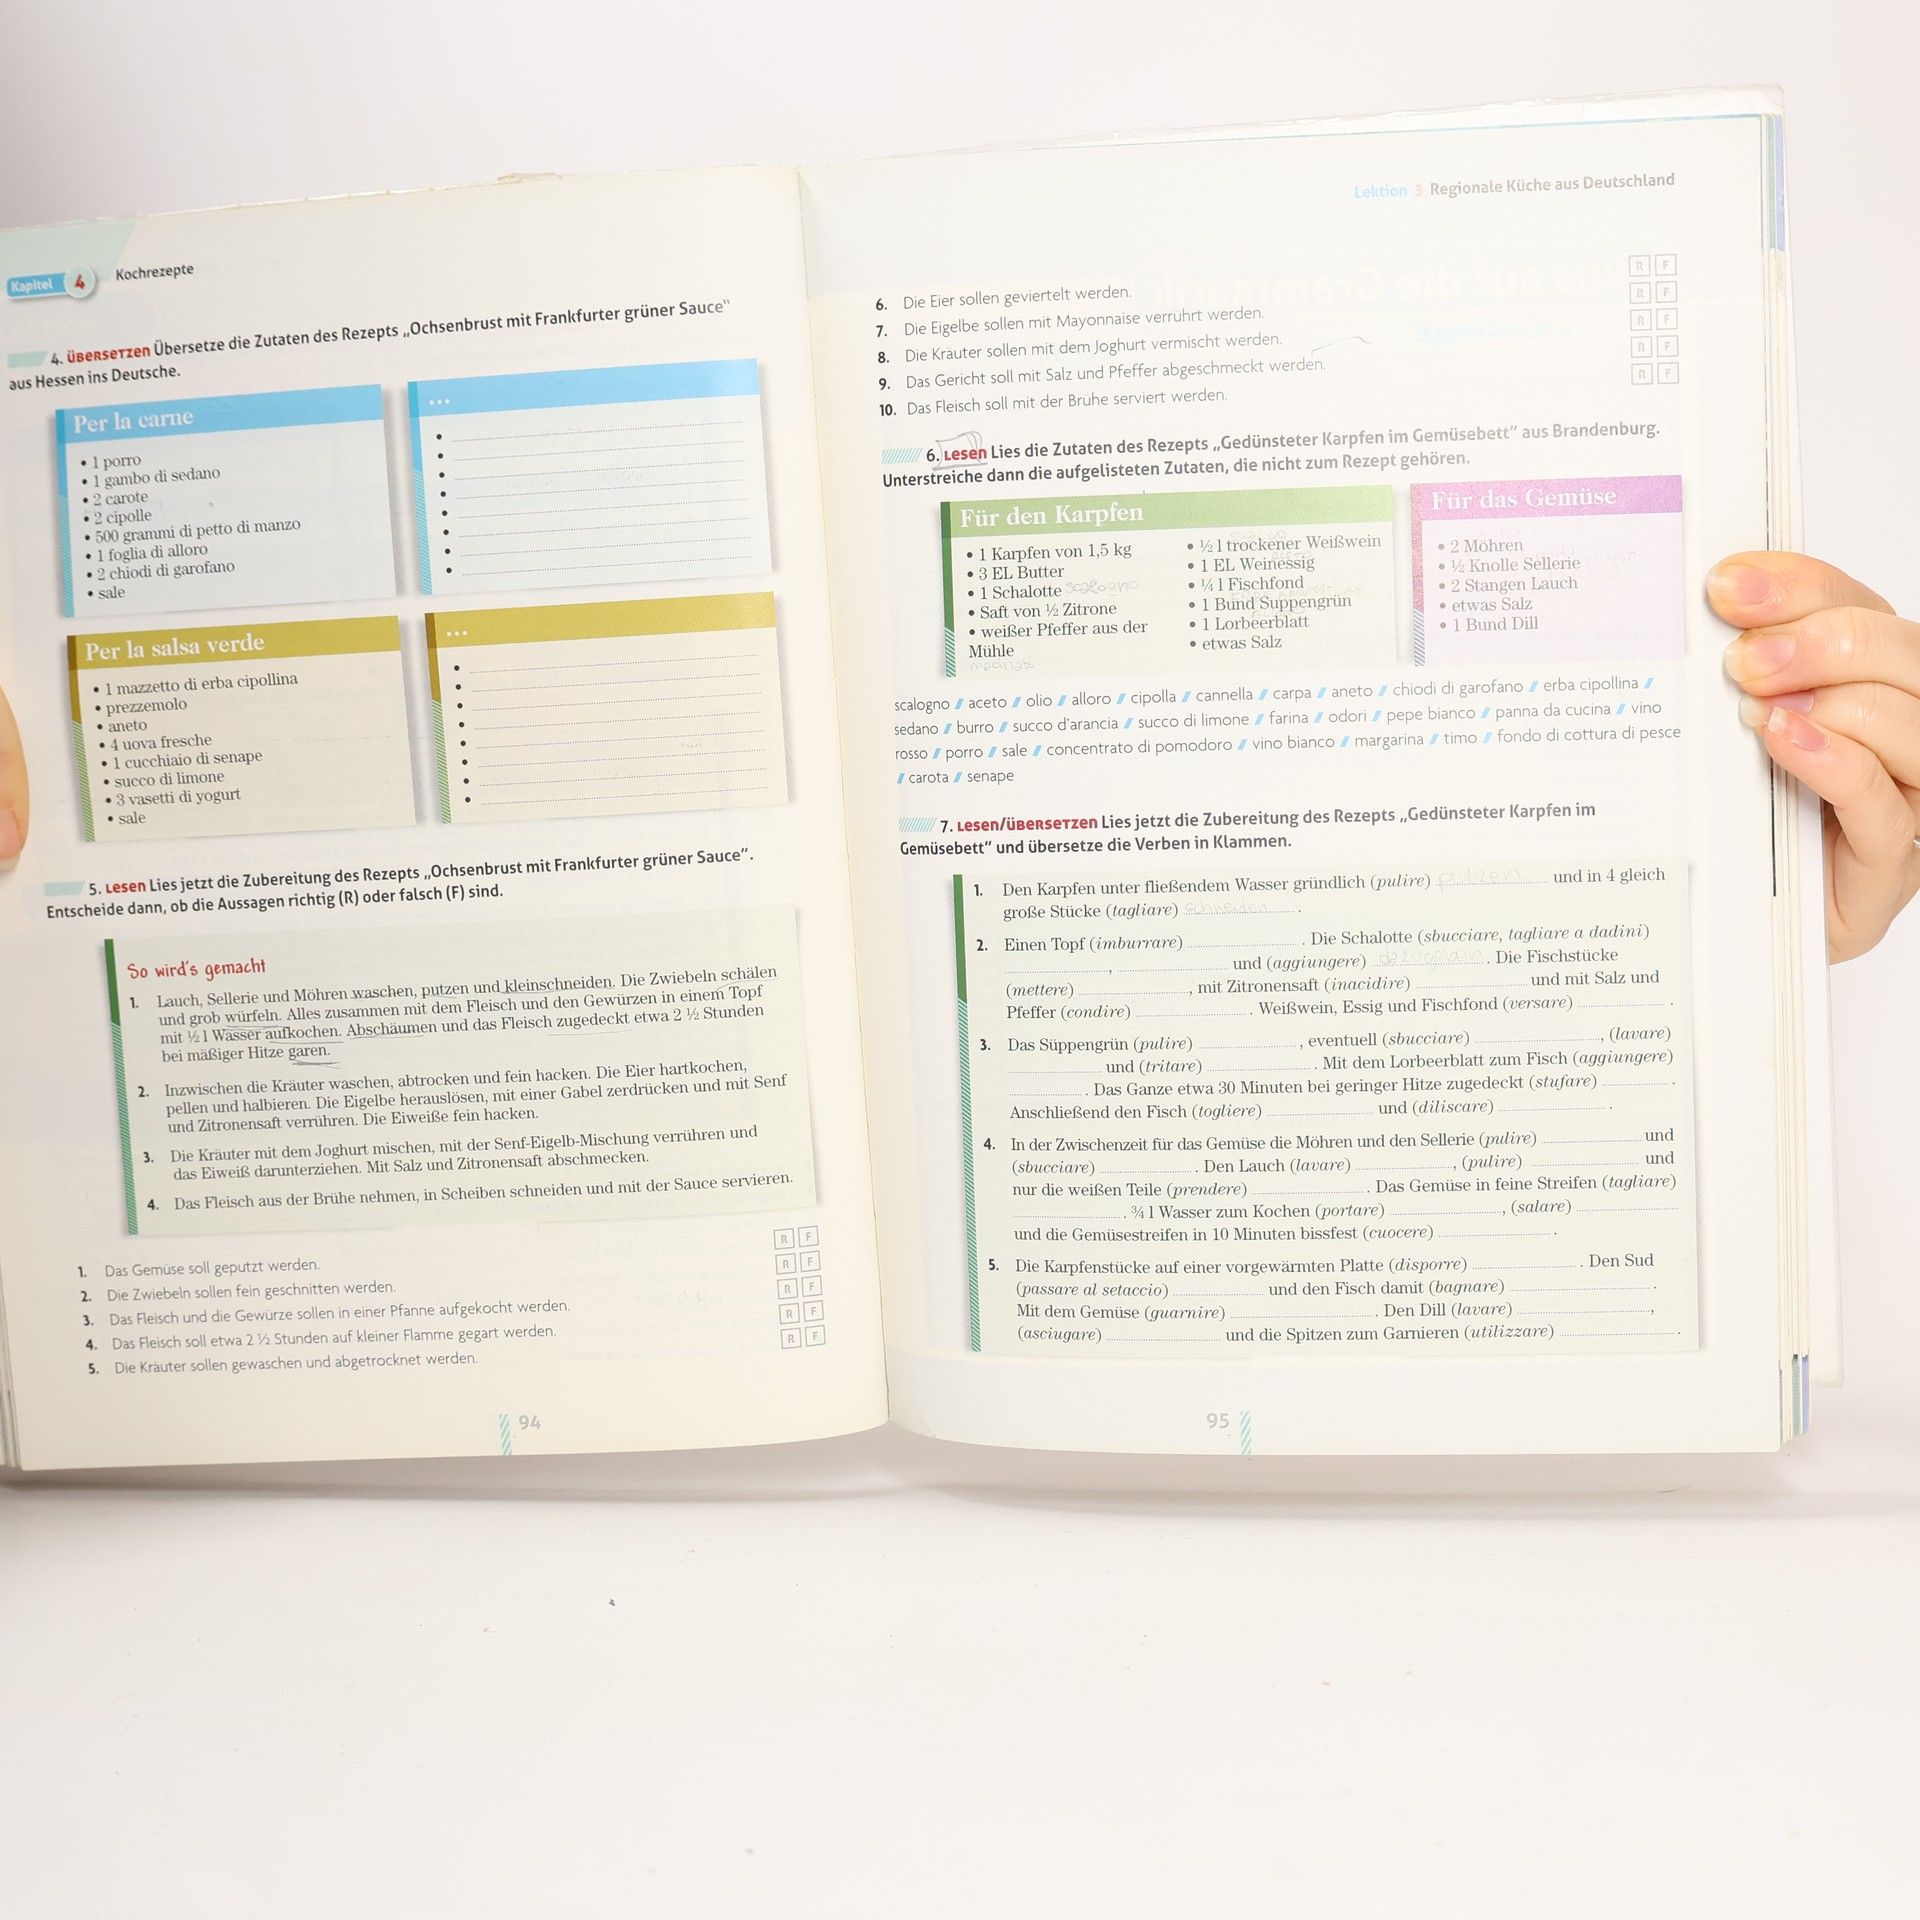 Kapitel 4 Kochrezepte
4. ÜBERSETZEN Übersetze die Zutaten des Rezepts „Ochsenbrust mit Frankfurter grüner Sauce"
aus Hessen ins Deutsche.
Per la carne
• 1 porro
• 1 gambo di sedano
• 2 carote
• 2 cipolle
• 500 grammi di petto di manzo
• 1 foglia di alloro
• 2 chiodi di garofano
• sale
...
Per la salsa verde
• 1 mazzetto di erba cipollina
• prezzemolo
• aneto
• 4 uova fresche
• 1 cucchiaio di senape
• succo di limone
• 3 vasetti di yogurt
• sale
...
5. LESEN Lies jetzt die Zubereitung des Rezepts „Ochsenbrust mit Frankfurter grüner Sauce".
Entscheide dann, ob die Aussagen richtig (R) oder falsch (F) sind.
So wird's gemacht
1. Lauch, Sellerie und Möhren waschen, putzen und kleinschneiden. Die Zwiebeln schälen
und grob würfeln. Alles zusammen mit dem Fleisch und den Gewürzen in einem Topf
mit ½ l Wasser aufkochen. Abschäumen und das Fleisch zugedeckt etwa 2 ½ Stunden
bei mäßiger Hitze garen.
2. Inzwischen die Kräuter waschen, abtrocken und fein hacken. Die Eier hartkochen,
pellen und halbieren. Die Eigelbe herauslösen, mit einer Gabel zerdrücken und mit Senf
und Zitronensaft verrühren. Die Eiweiße fein hacken.
3. Die Kräuter mit dem Joghurt mischen, mit der Senf-Eigelb-Mischung verrühren und
das Eiweiß darunterziehen. Mit Salz und Zitronensaft abschmecken.
4. Das Fleisch aus der Brühe nehmen, in Scheiben schneiden und mit der Sauce servieren.
1. Das Gemüse soll geputzt werden. R F
2. Die Zwiebeln sollen fein geschnitten werden. R F
3. Das Fleisch und die Gewürze sollen in einer Pfanne aufgekocht werden. R F
4. Das Fleisch soll etwa 2 ½ Stunden auf kleiner Flamme gegart werden. R F
5. Die Kräuter sollen gewaschen und abgetrocknet werden. R F
94
Lektion 3 Regionale Küche aus Deutschland
6. Die Eier sollen geviertelt werden. R F
7. Die Eigelbe sollen mit Mayonnaise verrührt werden. R F
8. Die Kräuter sollen mit dem Joghurt vermischt werden. R F
9. Das Gericht soll mit Salz und Pfeffer abgeschmeckt werden. R F
10. Das Fleisch soll mit der Brühe serviert werden. R F
6. LESEN Lies die Zutaten des Rezepts „Gedünsteter Karpfen im Gemüsebett" aus Brandenburg.
Unterstreiche dann die aufgelisteten Zutaten, die nicht zum Rezept gehören.
Für den Karpfen
• 1 Karpfen von 1,5 kg
• 3 EL Butter
• 1 Schalotte scalogno
• Saft von ½ Zitrone
• weißer Pfeffer aus der
Mühle
macinato
• ½ l trockener Weißwein
• 1 EL Weinessig
• ¼ l Fischfond
• 1 Bund Suppengrün
• 1 Lorbeerblatt
• etwas Salz
Für das Gemüse
• 2 Möhren
• ½ Knolle Sellerie
• 2 Stangen Lauch
• etwas Salz
• 1 Bund Dill
scalogno / aceto / olio / alloro / cipolla / cannella / carpa / aneto / chiodi di garofano / erba cipollina /
sedano / burro / succo d'arancia / succo di limone / farina / odori / pepe bianco / panna da cucina / vino
rosso / porro / sale / concentrato di pomodoro / vino bianco / margarina / timo / fondo di cottura di pesce
/ carota / senape
7. LESEN/ÜBERSETZEN Lies jetzt die Zubereitung des Rezepts „Gedünsteter Karpfen im
Gemüsebett" und übersetze die Verben in Klammen.
1. Den Karpfen unter fließendem Wasser gründlich (pulire) putzen und in 4 gleich
große Stücke (tagliare) schneiden .
2. Einen Topf (imburrare) . Die Schalotte (sbucciare, tagliare a dadini)
, und (aggiungere) dazugeben . Die Fischstücke
(mettere) , mit Zitronensaft (inacidire) und mit Salz und
Pfeffer (condire) . Weißwein, Essig und Fischfond (versare) .
3. Das Süppengrün (pulire) , eventuell (sbucciare) , (lavare)
und (tritare) . Mit dem Lorbeerblatt zum Fisch (aggiungere)
. Das Ganze etwa 30 Minuten bei geringer Hitze zugedeckt (stufare) .
Anschließend den Fisch (togliere) und (diliscare) .
4. In der Zwischenzeit für das Gemüse die Möhren und den Sellerie (pulire) und
(sbucciare) . Den Lauch (lavare) , (pulire) und
nur die weißen Teile (prendere) . Das Gemüse in feine Streifen (tagliare)
. ¾ l Wasser zum Kochen (portare) , (salare)
und die Gemüsestreifen in 10 Minuten bissfest (cuocere) .
5. Die Karpfenstücke auf einer vorgewärmten Platte (disporre) . Den Sud
(passare al setaccio) und den Fisch damit (bagnare) .
Mit dem Gemüse (guarnire) . Den Dill (lavare) ,
(asciugare) und die Spitzen zum Garnieren (utilizzare) .
95